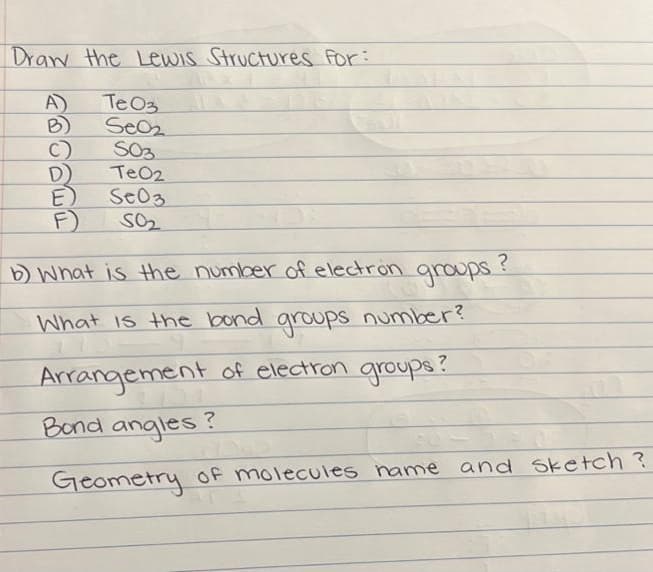 Draw the Lewis Structures for:
A) TeO3
B) SeO2
C) SO3
D) TeO2
E) SeO3
F) SO2
b) What is the number of electron groups?
What is the bond groups number?
Arrangement of electron groups?
Bond angles?
Geometry of molecules name and sketch?